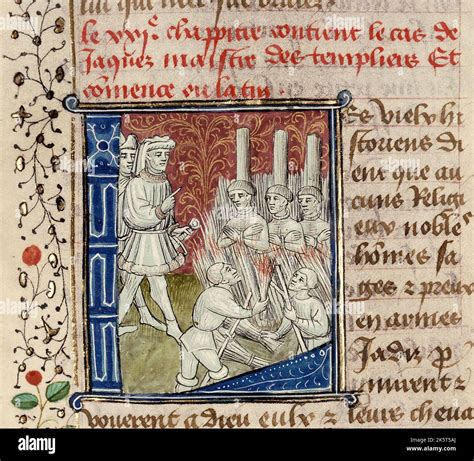 lui que mal
le xxi^e chappitre contient le cas de
Jaquez maistre des templiers Et
comence ou latin
es vielz hi
storiens di
ent que au
cuns Religi
eux nobles
hõmes sa
ges z preux
en armes
Jadiz p
z
vouerent a dieu eulx z leurs cheva
alamy
Image ID: 2K5T5AJ
www.alamy.com